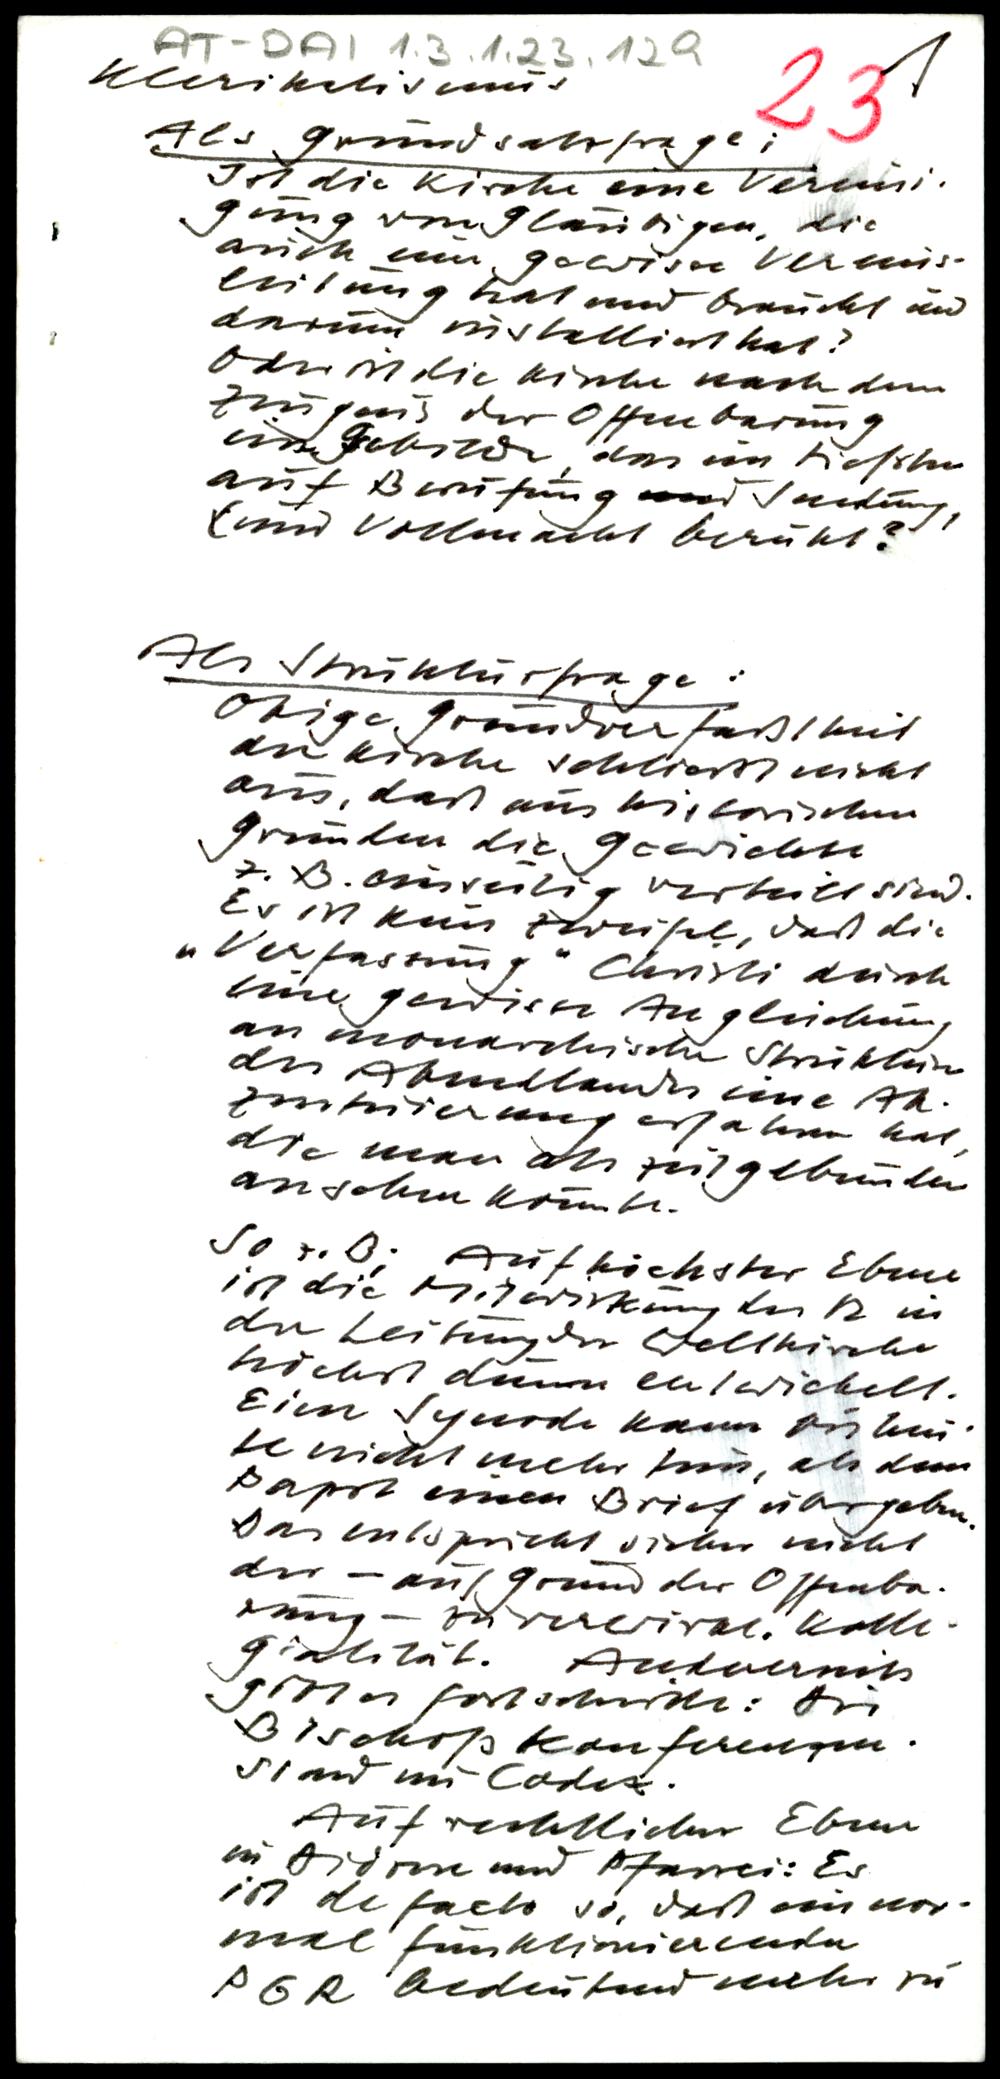 AT-DAI 1.3.1.23.129
23 1
Klerikalismus
Als Grundsatzfrage:
Ist die Kirche eine Verein-
gung von Gläubigen, die
auch eine gewisse
leitung hat und braucht und
darum installiert hat?
Oder ist die Kirche nach dem
Zeugnis der Offenbarung
ein Gebilde, das im tiefsten
auf Berufung und Sendung,
(und Vollmacht beruht?
Als Strukturfrage:
Obige Grundverfaßtheit
der Kirche schließt nicht
aus, daß aus historischen
Gründen die Gewichte
z. B. einseitig verteilt sind.
Es ist kein Zweifel, daß die
"Verfassung" Christi durch
eine gewisse Angleichung
an monarchische Strukturen
des Abendlandes eine Ak-
zentuierung erfahren hat,
die man als zeitgebunden
ansehen könnte.
So z. B.: Auf höchster Ebene
ist die Mitwirkung der B in
der Leitung der Weltkirche
höchst dünn entwickelt.
Eine Synode kann bis heu-
te nicht mehr tun, als dem
Papst einen Brief übergeben.
Das entspricht sicher nicht
der – auf Grund der Offenba-
rung – Kolle-
gialität. Andererseits
größer Fortschritte: Die
Bischofskonferenzen.
sind im Codex.
Auf rechtlicher Ebene
in Diözese und Pfarrei: Es
ist de facto so, daß ein nor-
mal funktionierender
PGR bedeutend mehr zu